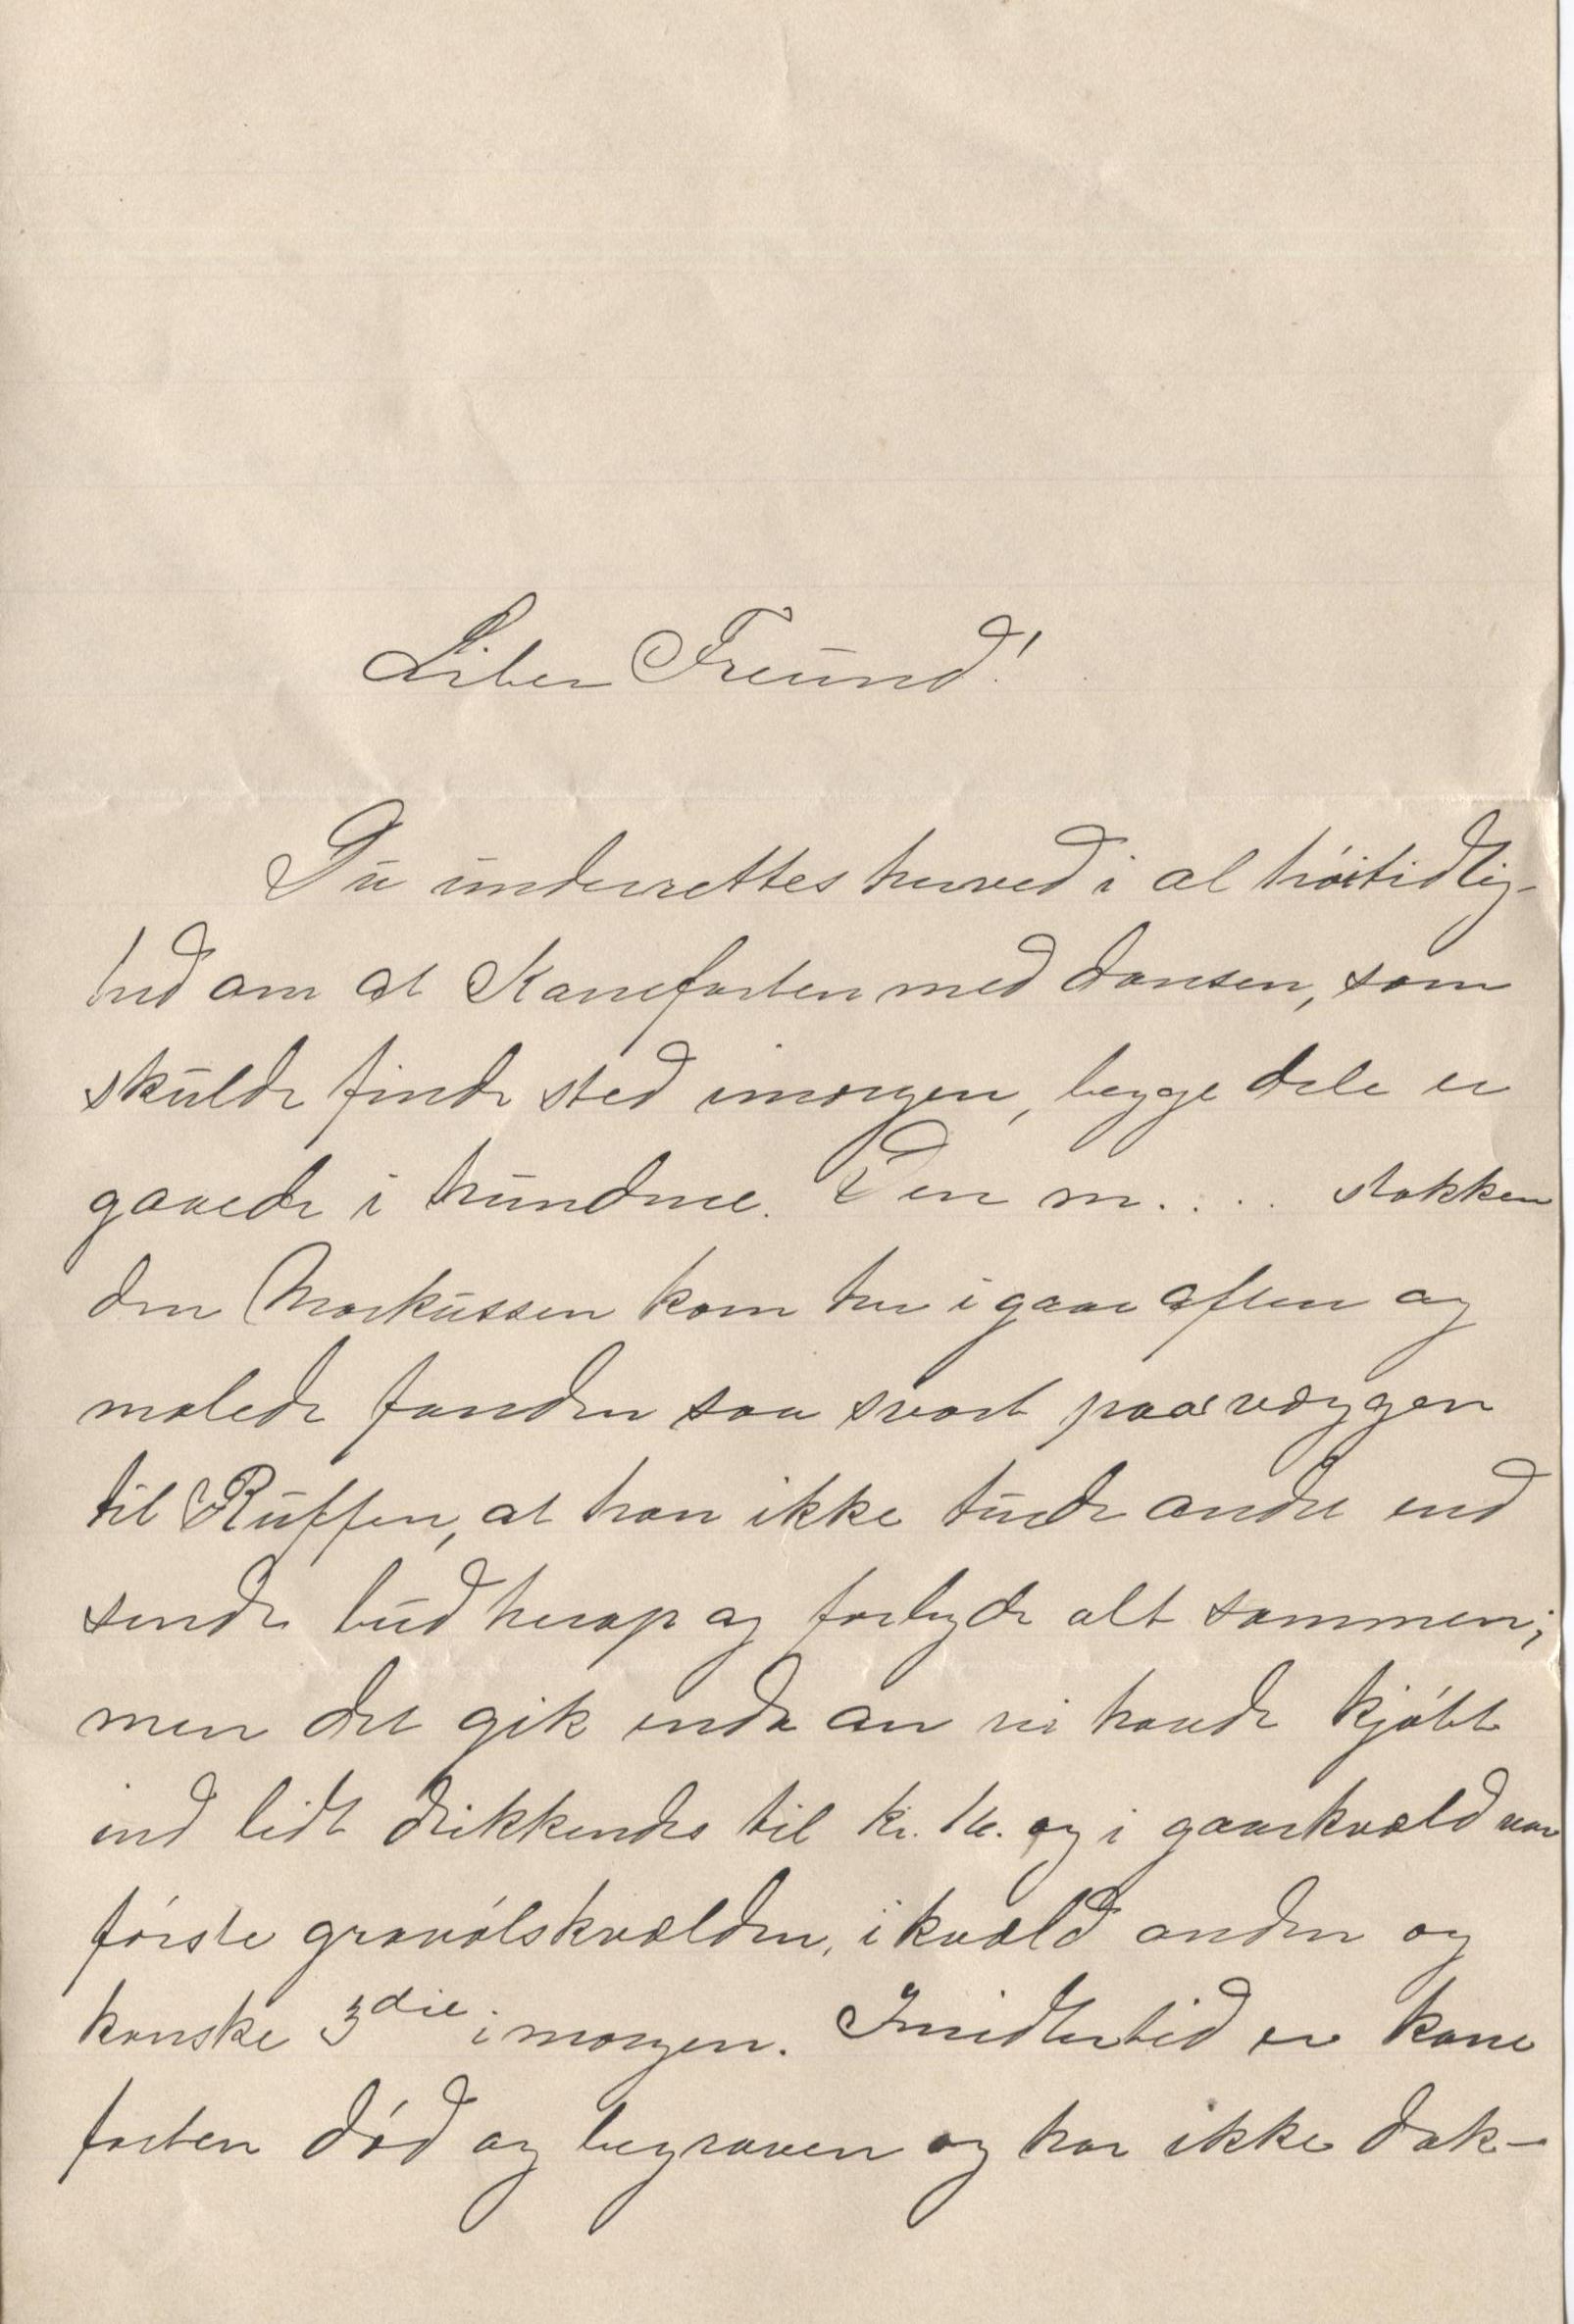 Lieber Freund!
Du underrettes herved i al høitidlig-
hed om at Kanefarten med dansen, som
skulde finde sted imorgen, begge dele er
gaaede i hundene. Den m.... stakken
den Markussen kom her igaar aften og
malede fanden saa svart paa væggen
til Ruffen, at han ikke turde andet end
sende bud herop og forbyde alt sammen;
men det gik enda an vi havde kjøbt
ind lidt drikkendes til kr. 16. og i gaarkvæld var
første gravølskvælden, ikvæld anden og
kanske 3die imorgen. Imidlertid er kane
farten død og begraven og har ikke dok-